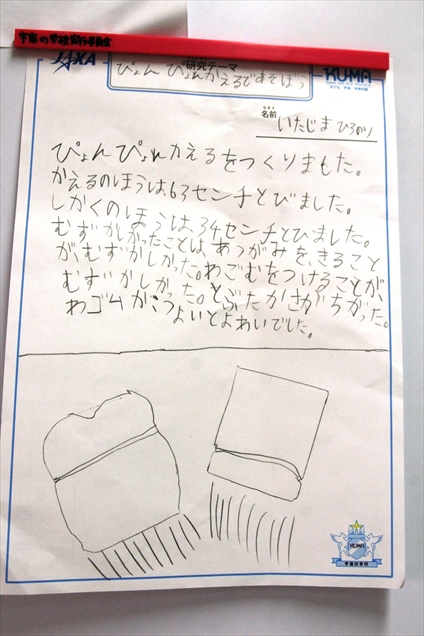 宇宙の学校実行委員会
JAXA
研究テーマ
ぴょんぴょんかえるであそぼう
KUMA
名前
いたじま ひろのり
ぴょんぴょんかえるをつくりました。
かえるのほうは63センチとびました。
しかくのほうは34センチとびました。
むずかしかったことは、あつがみを、きること
が、むずがしかった。わごむをつけることが、
むずがしかった。とぶたかさがちがった。
わゴムが、つよいとよわいでした。
KUMA
宇宙の学校